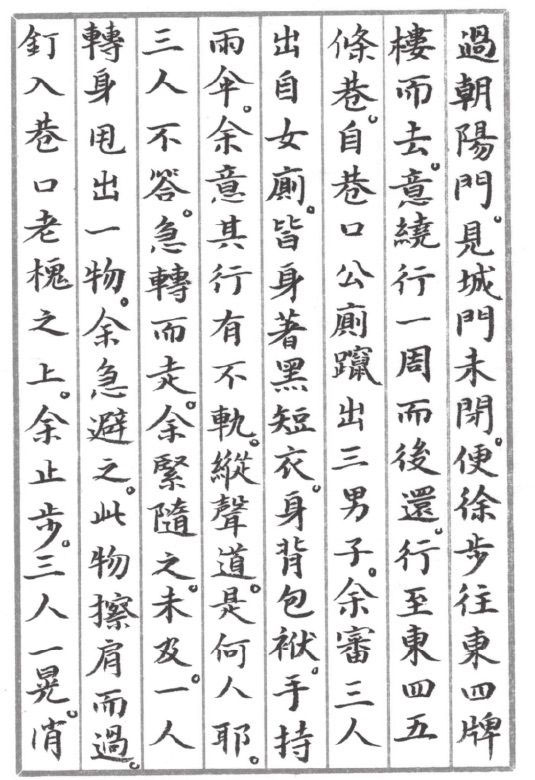 過朝陽門。見城門未閉。便徐步往東四牌
樓而去。意繞行一周而後還。行至東四五
條巷。自巷口公廁躥出三男子。余審三人
出自女廁。皆身著黑短衣。身背包袱。手持
雨傘。余意其行有不軌。縱聲道。是何人耶。
三人不答。急轉而走。余緊隨之。未及。一人
轉身甩出一物。余急避之。此物擦肩而過。
釘入巷口老槐之上。余止步。三人一晃。消